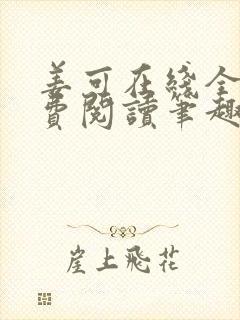 善可在綫全
費閱讀筆趣
崖上飛花